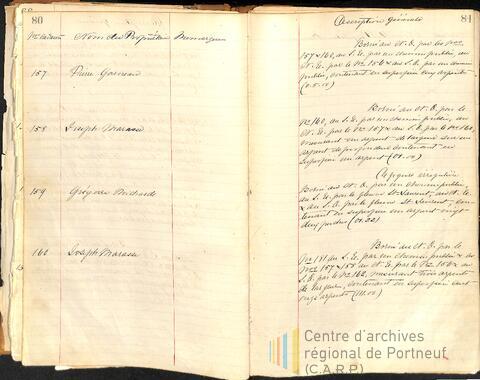 80
Nos cadastre Noms des Propriétaires Remarques
157 Pierre
158 Joseph Marasse
159 Grégoire Richard
160 Joseph Marasse
81
Description Générale
Borné au N. O. par les Nos
157 & 160, au S. E. par un chemin public, au
N. E. par le No 156 & au S. O. par un chemin
public, contenant en superficie cinq arpents
(0.5.00)
Borné au N. O. par le
No 160, au S. E. par un chemin public, au
N. E. par le No 157 & au S. O. par le No 160,
mesurant un arpent de largeur sur un
arpent de profondeur contenant en
superficie un arpent (01.00)
De figure irrégulière
Borné au N. O. par un chemin public,
au S. E. par le fleuve St Laurent, au N. E.
& au S. O. par le fleuve St Laurent, con-
tenant en superficie un arpent vingt
deux perches (01.22)
Borné au N. O. par le
No 181 au S. E. par un chemin public & au
Nos 157 & 158 au N. E. par le No 156 & au
S. O. par le No 162, mesurant trois arpents
de largeur, contenant en superficie cent
onze arpents (111.00)
Centre d'archives
régional de Portneuf
(C.A.R.P.)